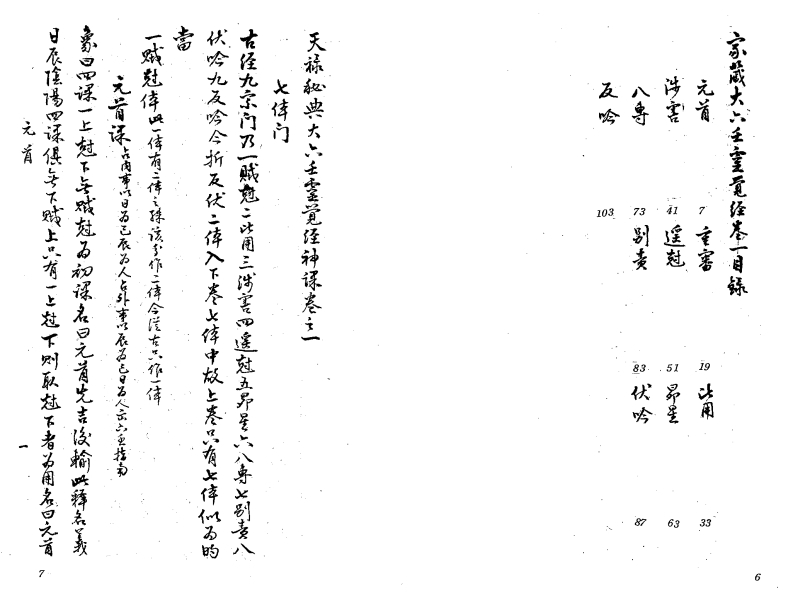 家藏大六壬靈覺經卷一目錄
元首 7 重審 19 比用 33
涉害 41 遥尅 51 昴星 63
八專 73 别責 83 伏吟 87
反吟 103
6
天禄秘典大六壬靈覺經神課卷之一
七体门
古经九宗门乃一贼尅二比用三涉害四遥尅五昴星六八專七别責八
伏吟九反吟今折反伏二体入下卷七体中故上卷只有七体似为昀
當
一贼尅体此一体有二体之殊该分作二体今從古只作一体
元首课 占内事以日为己辰为人占外事以辰为己日为人示六壬指南
象曰四课一上尅下无贼尅为初课名曰元首先吉後輸此釋名義
日辰陰陽四课俱无下贼上只有一上尅下则取尅下者为用名曰元首
元首
一
7